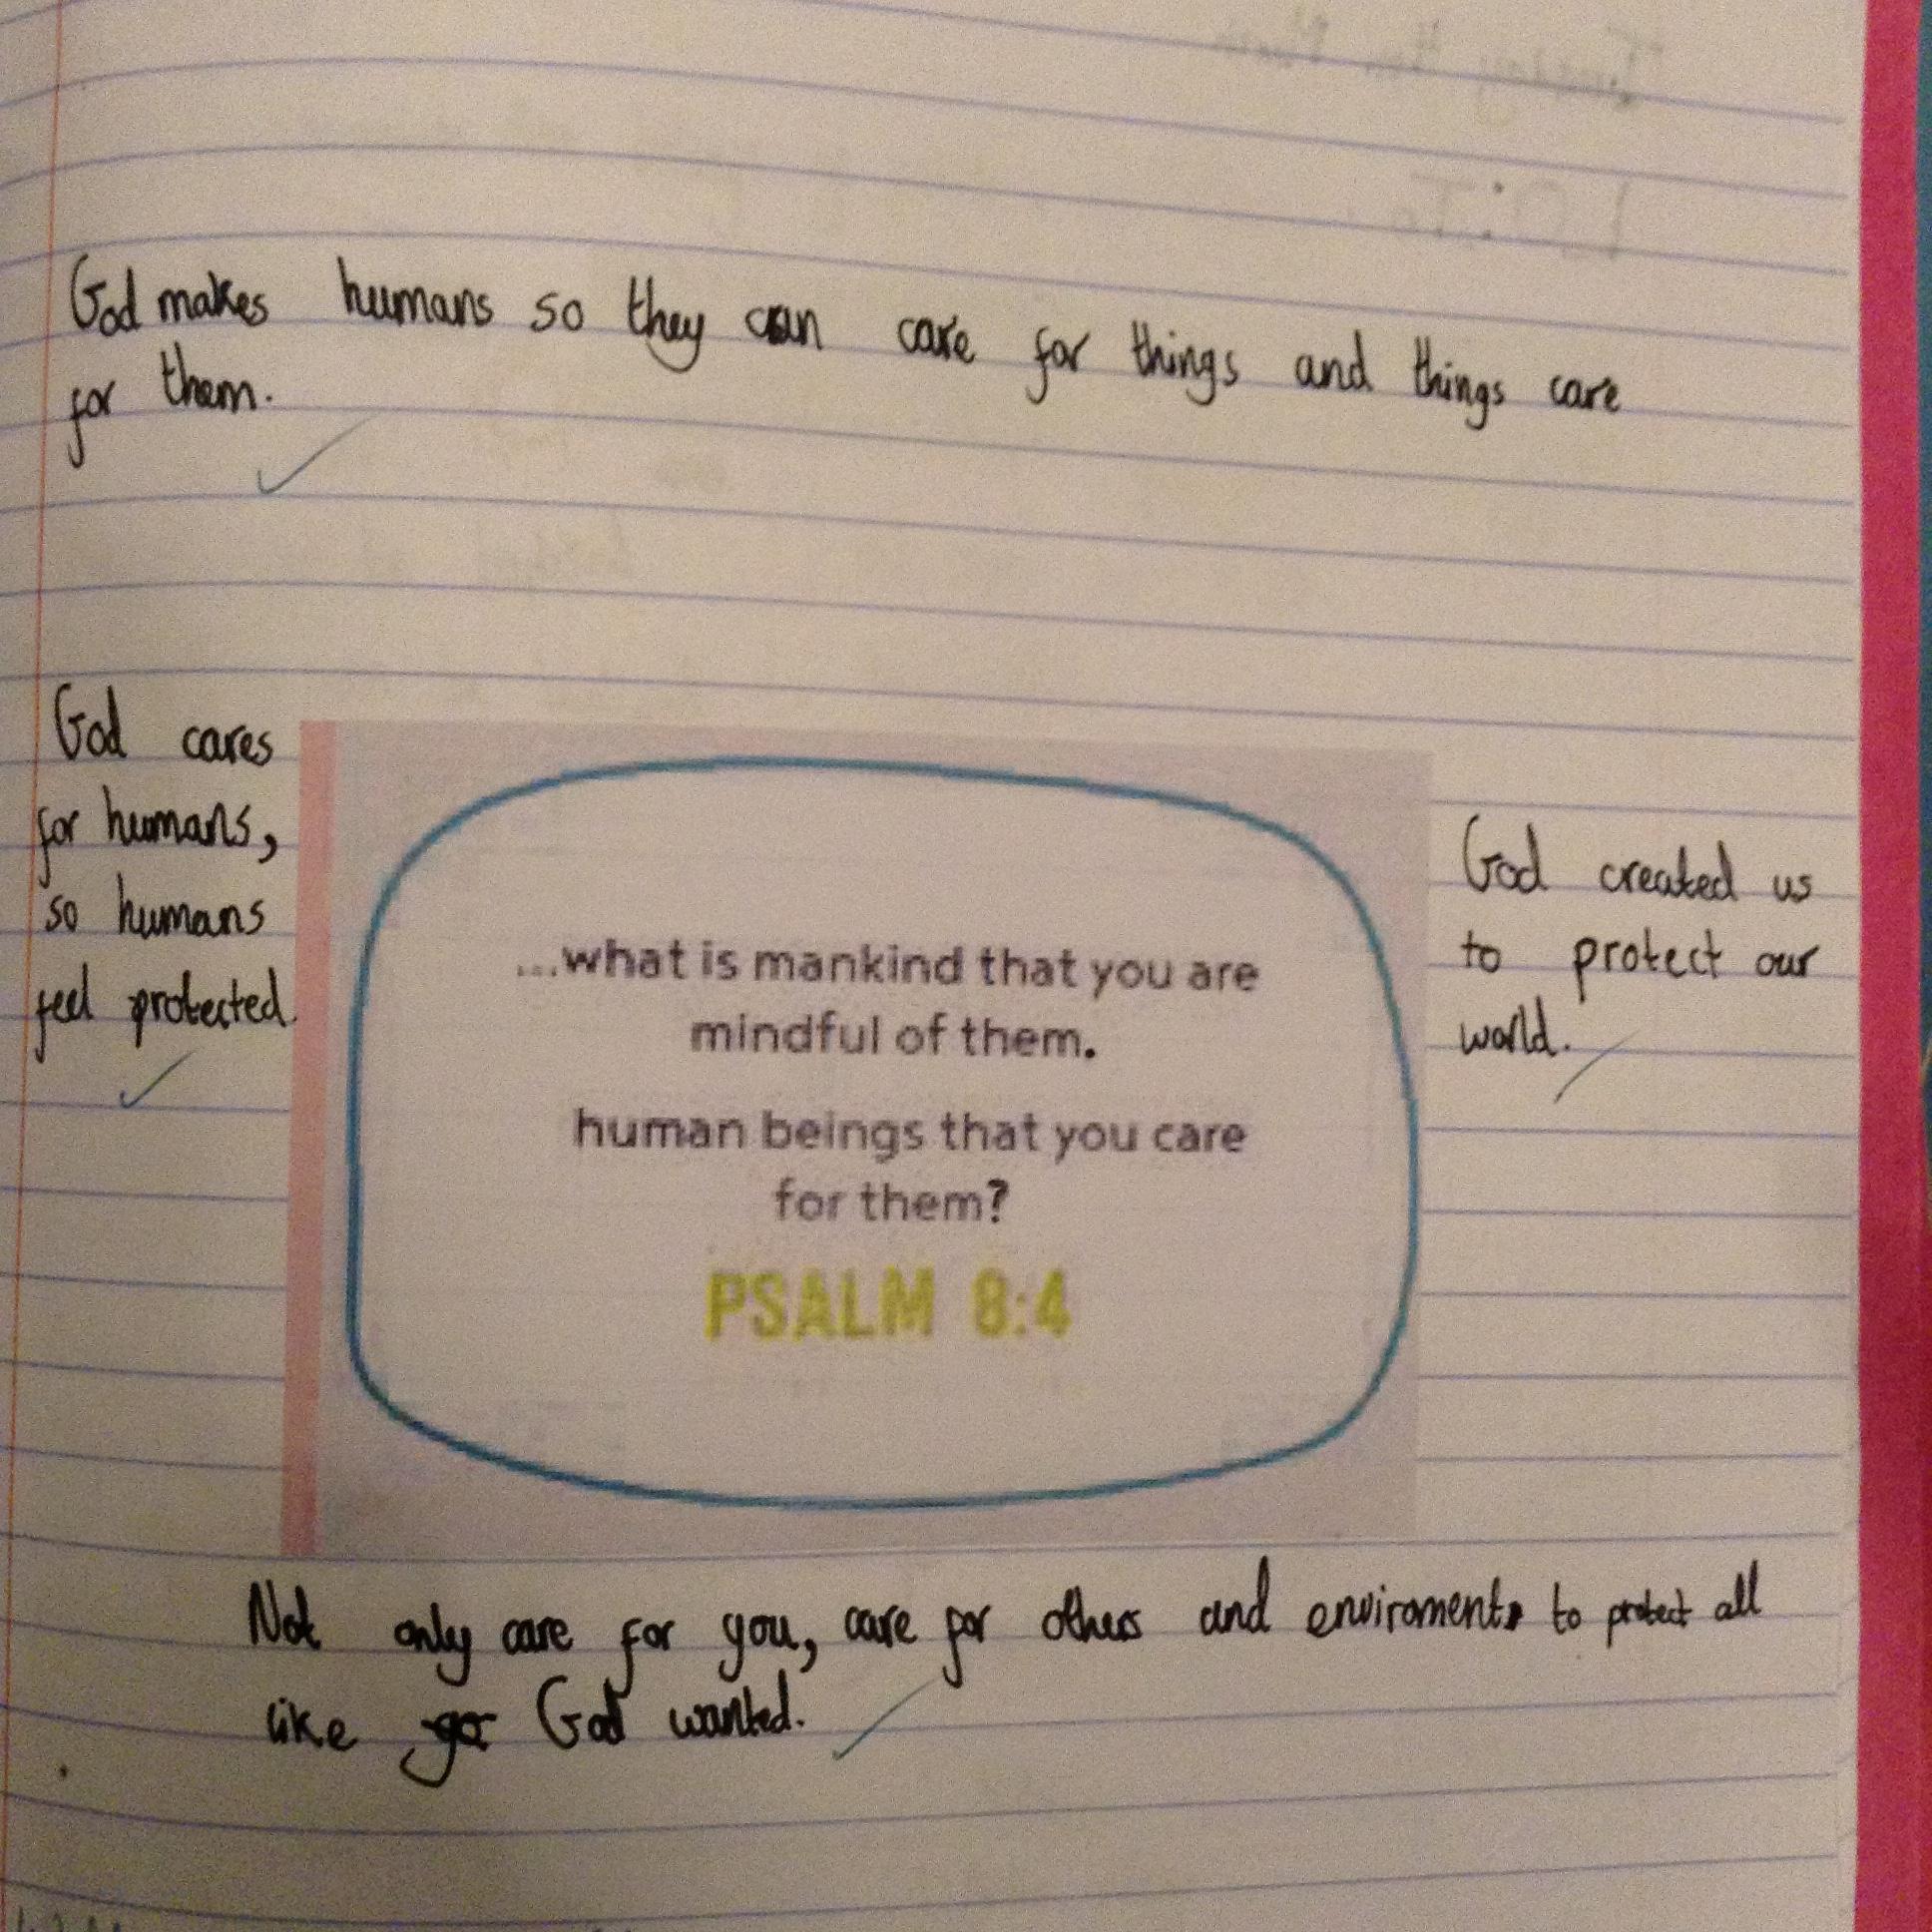 God makes humans so they can care for things and things care
for them.
God cares
for humans,
so humans
feel protected.
...what is mankind that you are
mindful of them.
human beings that you care
for them?
PSALM 8:4
God created us
to protect our
world.
Not only care for you, care for others and enviroments to protect all
like God wanted.